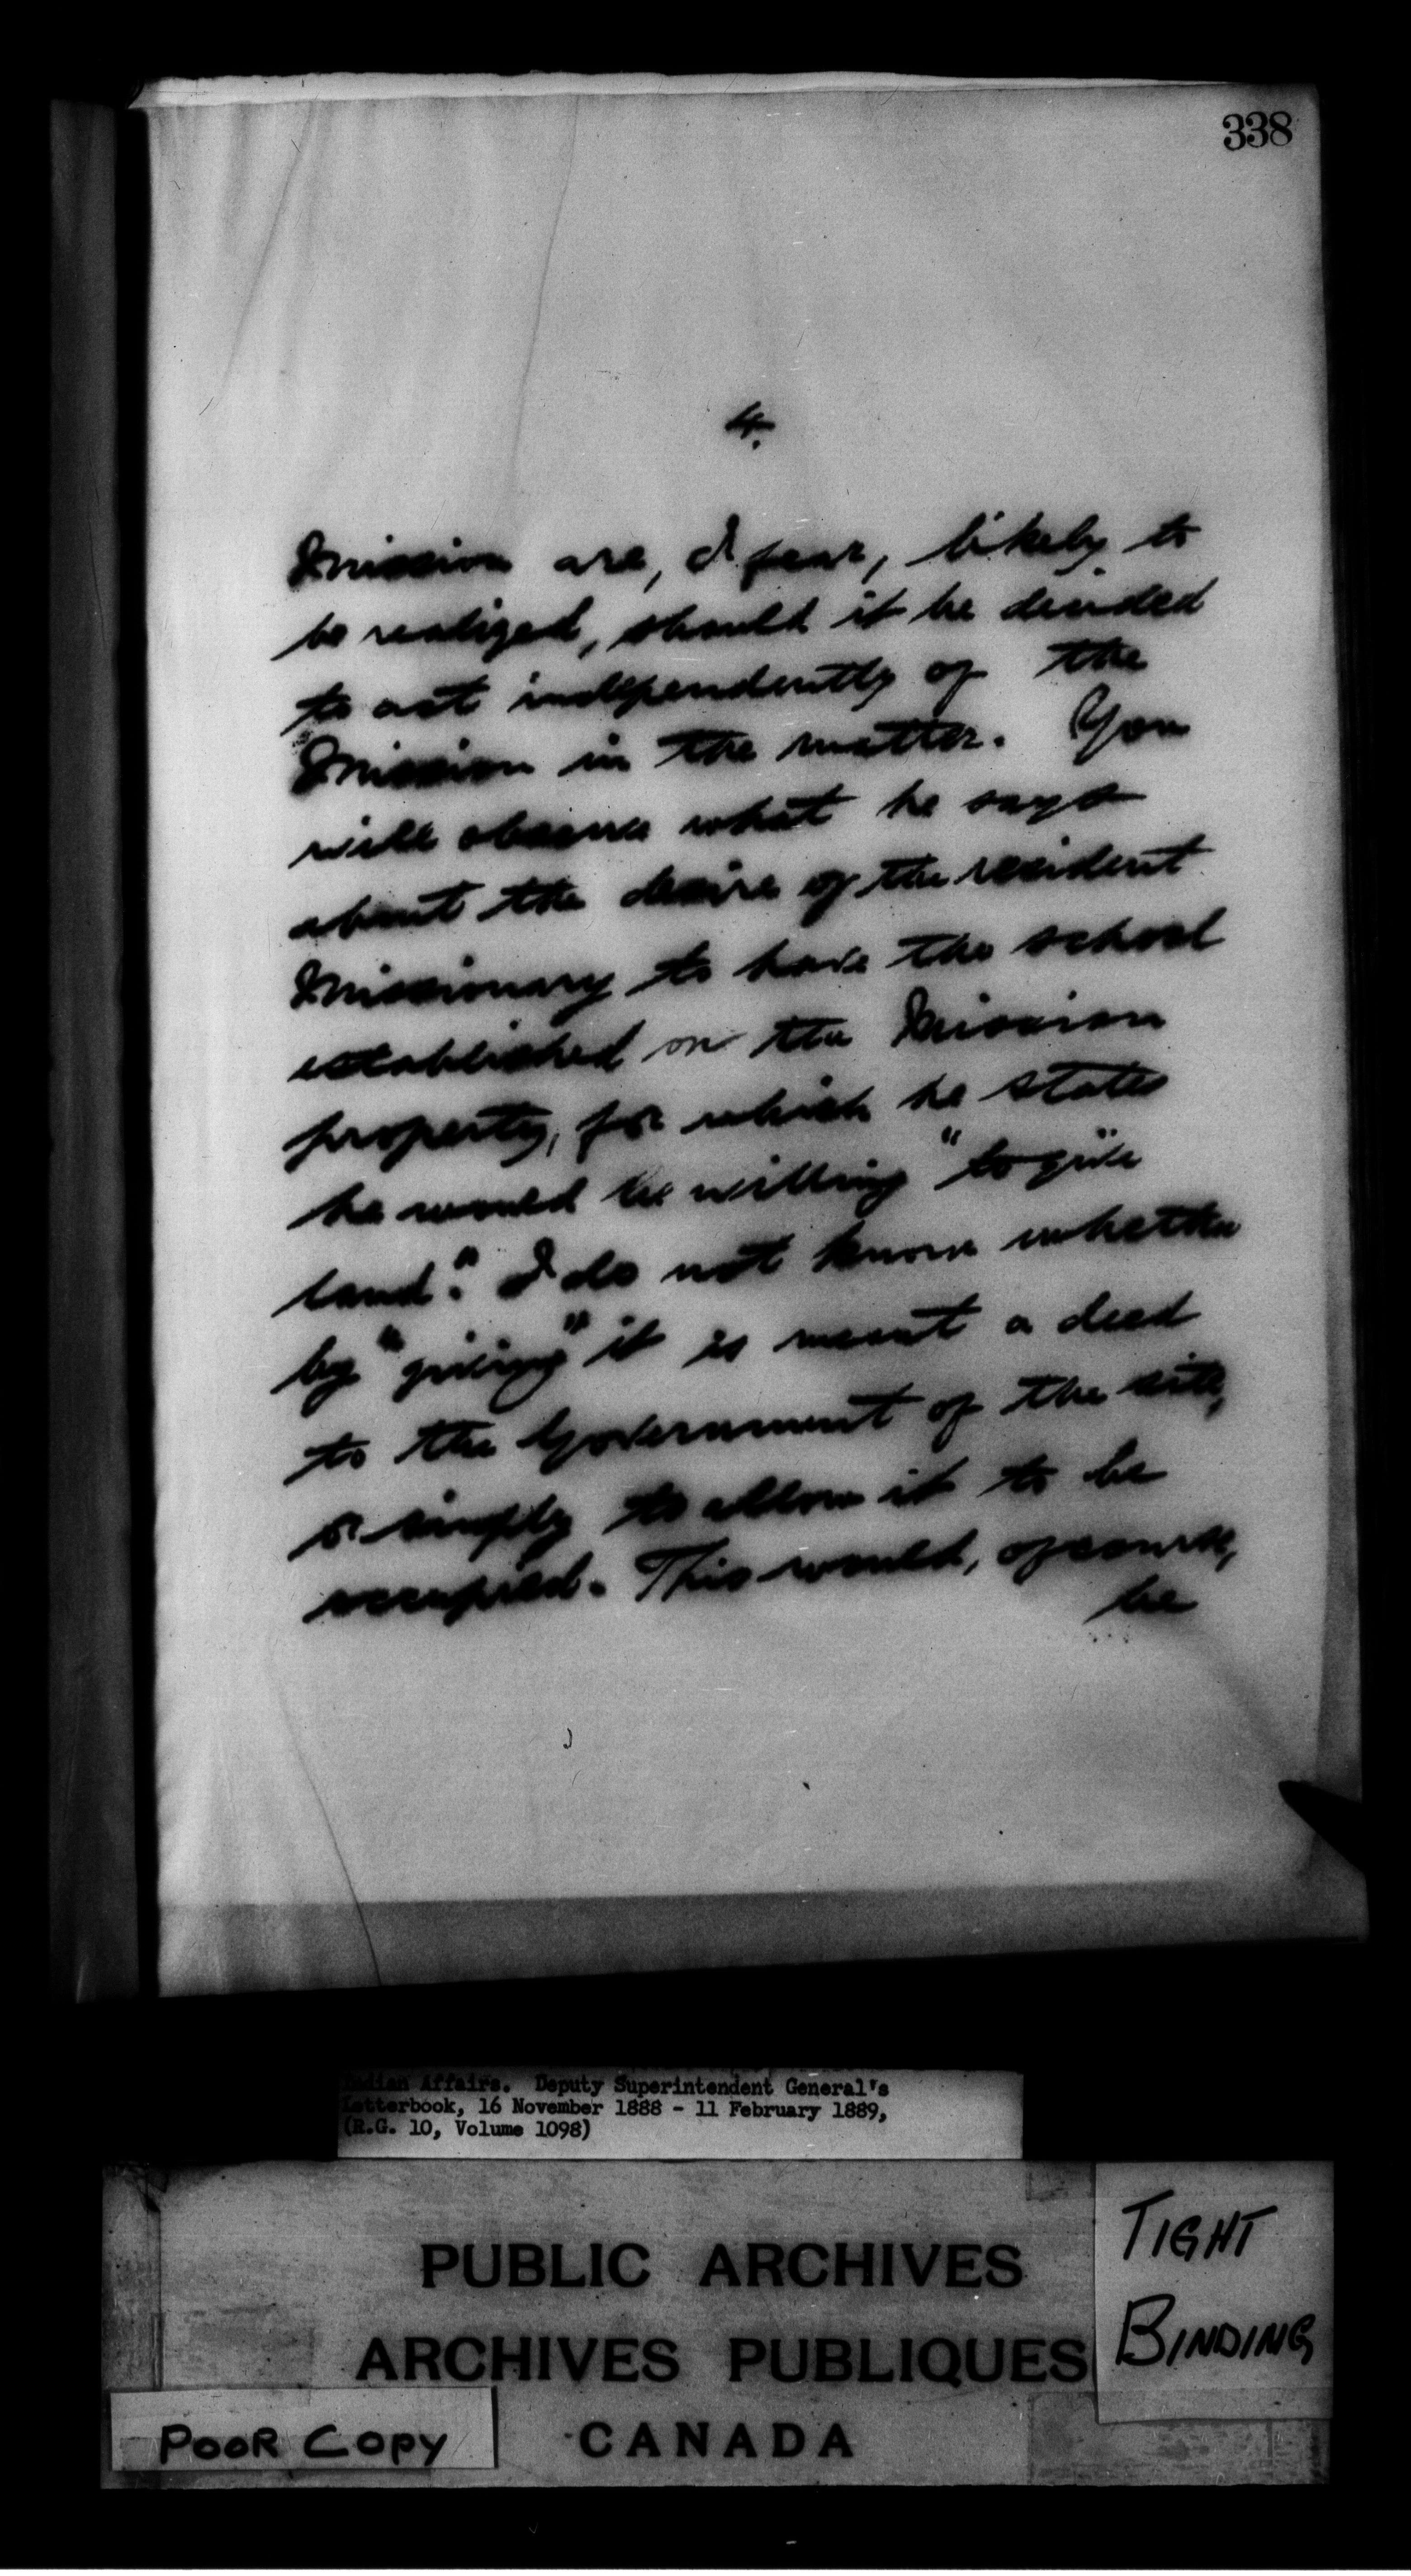 338
4.
Mission are, I fear, likely to
be realized, should it be decided
to act independently of the
Mission in the matter. You
will observe what he says
about the desire of the resident
Missionary to have the school
established on the Mission
property, for which he states
he would be willing "to give
land". I do not know whether
by "giving" it is meant a deed
to the Government of the site,
or simply to allow it to be
occupied. This would, of course,
be
Indian Affairs. Deputy Superintendent General's
Letterbook, 16 November 1888 - 11 February 1889,
(R.G. 10, Volume 1098)
PUBLIC ARCHIVES
ARCHIVES PUBLIQUES
CANADA
TIGHT
BINDING
POOR COPY